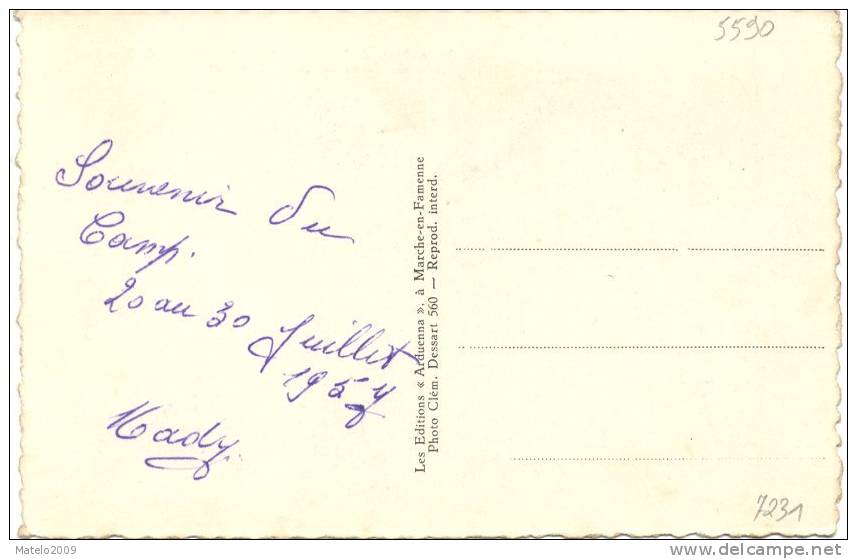 5590
Souvenir du
Camp.
20 au 30 Juillet
1957
Mady.
Les Editions « Arduenna ». à Marche-en-Famenne
Photo Clém. Dessart 560 — Reprod. interd.
7231
Matelo2009
www.delcampe.net